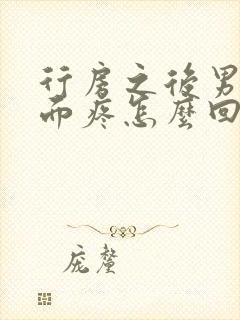 行房之後男
而疼怎麼回
庞聱